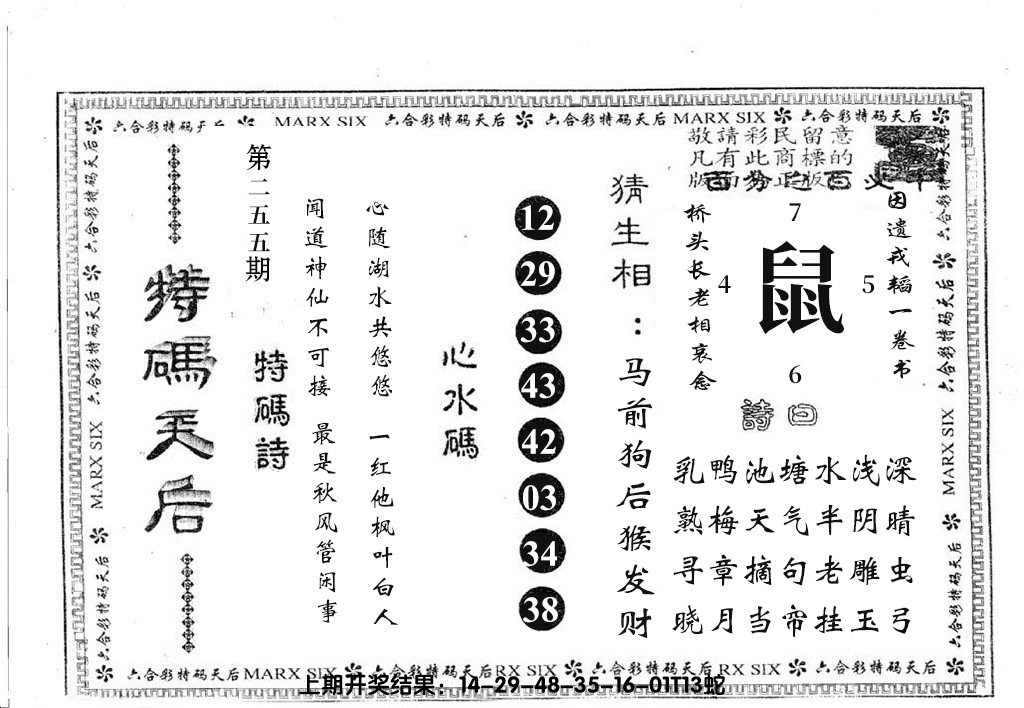 六合彩特码天后 MARX SIX 六合彩特码天后 六合彩特码天后 MARX SIX 六合彩特码天后
敬請彩民留意
凡有此商標的
版面為正版
特碼天后
第二五五期
特碼詩
闻道神仙不可接 最是秋风管闲事
心随湖水共悠悠 一红他枫叶白人
心水碼
12
29
33
43
42
03
34
38
猜生相:马前狗后猴发财
桥头长老相哀念
7
4 鼠 5
6
因遗戎韬一卷书
詩曰
乳鸭池塘水浅深
熟梅天气半阴晴
寻章摘句老雕虫
晓月当帘挂玉弓
六合彩特码天后 MARX SIX 六合彩特码天后
六合彩特码天后 MARX SIX 六合彩特码天后
六合彩特码天后 MARX SIX 六合彩特码天后 RX SIX 六合彩特码天后 RX SIX 六合彩特码天后
上期开奖结果：14-29-48-35-16-01T13蛇